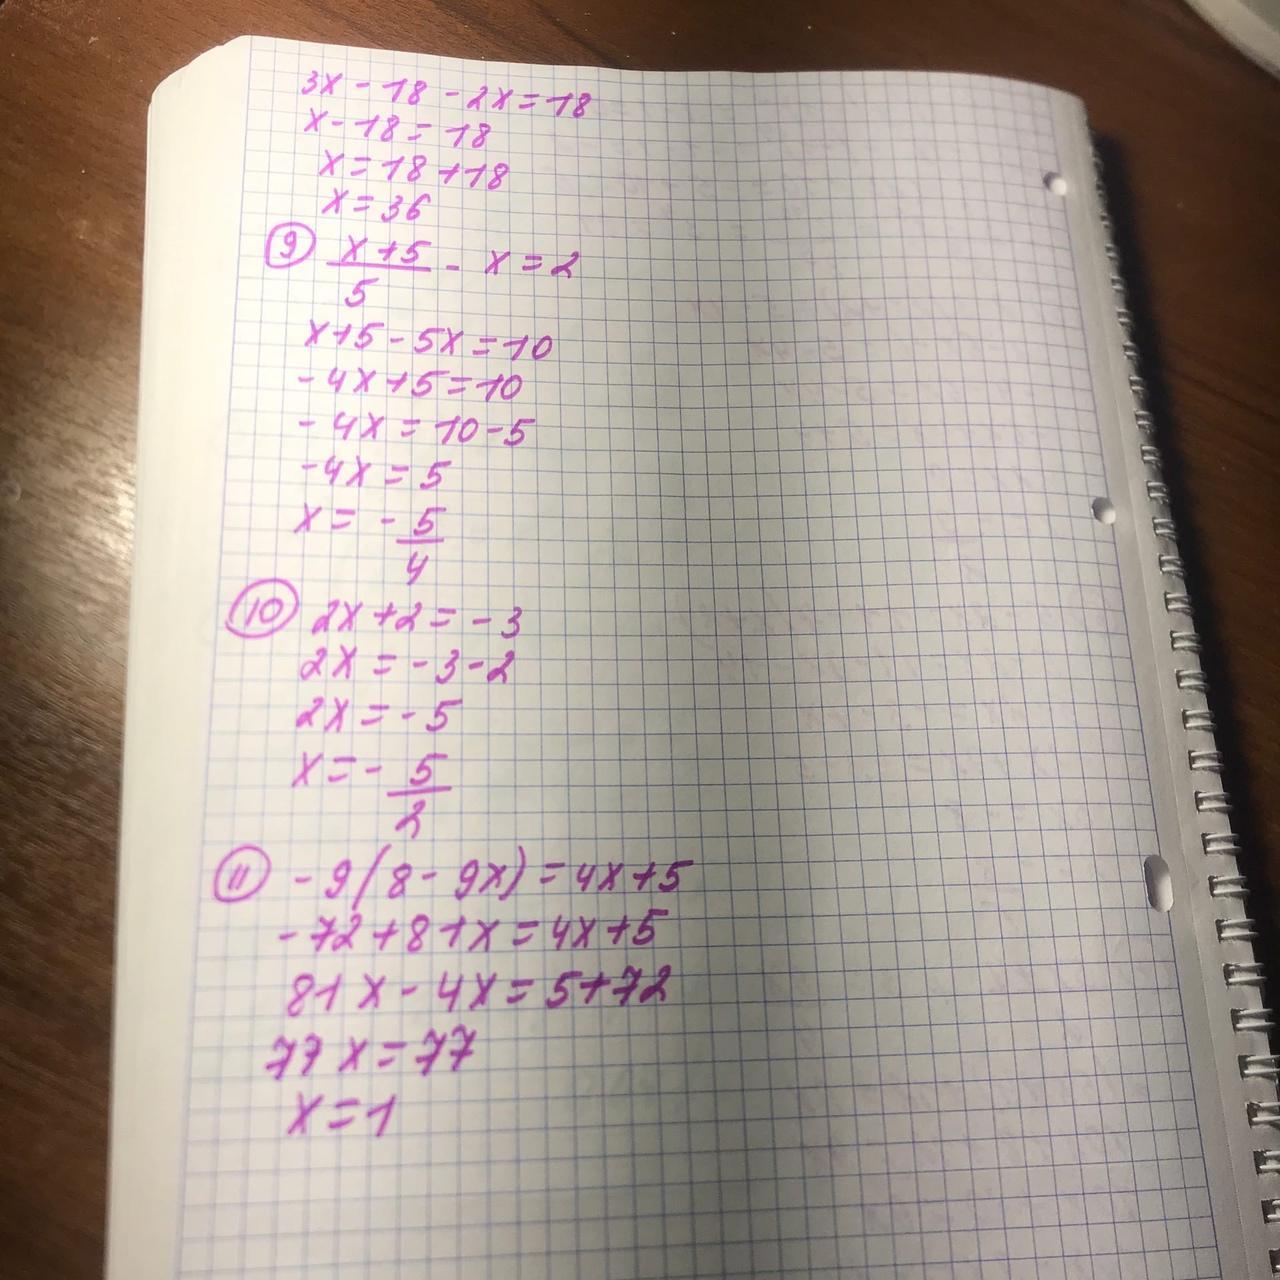 3x - 18 - 2x = 18
x - 18 = 18
x = 18 + 18
x = 36
⑨ (x + 5)/5 - x = 2
x + 5 - 5x = 10
- 4x + 5 = 10
- 4x = 10 - 5
- 4x = 5
x = - 5/4
⑩ 2x + 2 = - 3
2x = - 3 - 2
2x = - 5
x = - 5/2
⑪ - 9(8 - 9x) = 4x + 5
- 72 + 81x = 4x + 5
81x - 4x = 5 + 72
77x = 77
x = 1